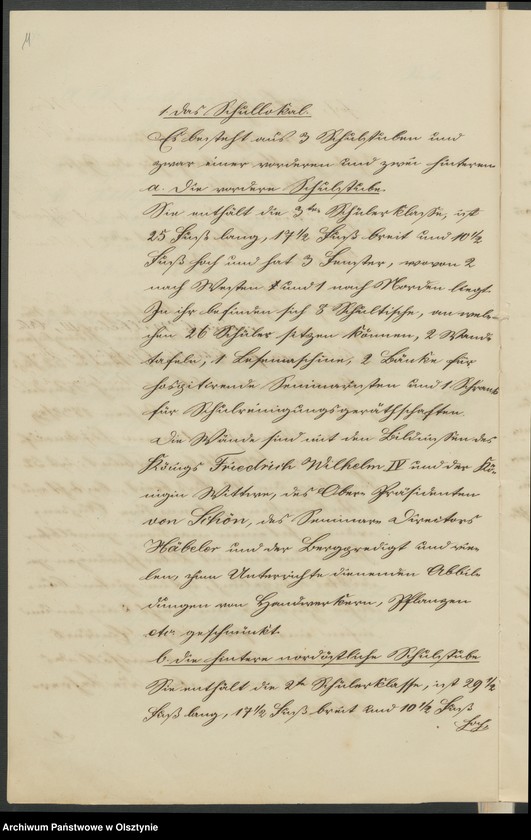 1. das Schullokal.
Es besteht aus 3 Schulstuben und
zwar einer vorderen und zwei hinteren
a. Die vordere Schulstube.
Sie enthält die 3te Schülerklasse, ist
25 Fuß lang, 17 1/2 Fuß breit und 10 1/2
Fuß hoch und hat 3 Fenster, wovon 2
nach Westen und 1 nach Norden liegt.
In ihr befinden sich 8 Schultische, an wel-
chen 26 Schüler sitzen können, 2 Wand-
tafeln, 1 Lesemaschine, 2 Bänke für
hospitirende Seminaristen und 1 Schrank
für Schulreinigungsgeräthschaften.
Die Wände sind mit den Bildnissen des
Königs Friedrich Wilhelm IV und der Kö-
nigin Wittwe, des Ober-Präsidenten
von Schön, des Seminar-Directors
Häbeler und der Bergpredigt und vie-
len, zum Unterrichte dienenden Abbil-
dungen von Handwerkern, Pflanzen
etc. geschmückt.
b. die hintere nordöstliche Schulstube
Sie enthält die 2te Schülerklasse, ist 29 1/2
Fuß lang, 17 1/2 Fuß breit und 10 1/2 Fuß
hoch,
Archiwum Państwowe w Olsztynie